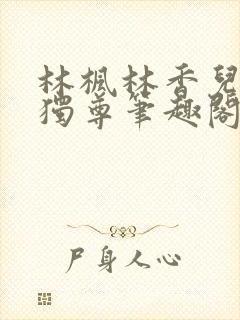 林楓林香兒
獨尊筆趣閣
尸身人心